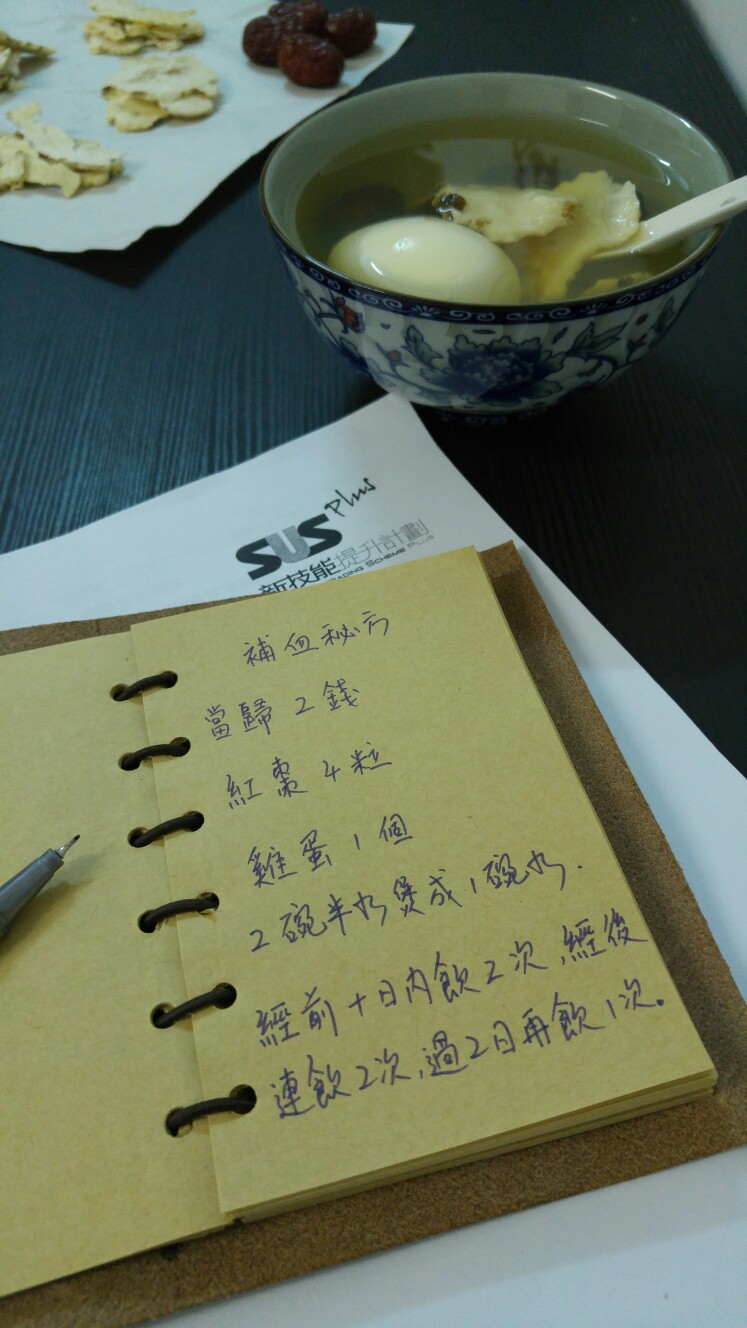 SUS Plus
新技能提升計劃
ADING SCHEME PLUS
補血秘方
當歸 2 錢
紅棗 4 粒
雞蛋 1 個
2 碗半水煲成 1 碗水.
經前十日內飲 2 次,經後
連飲 2 次,過 2 日再飲 1 次。